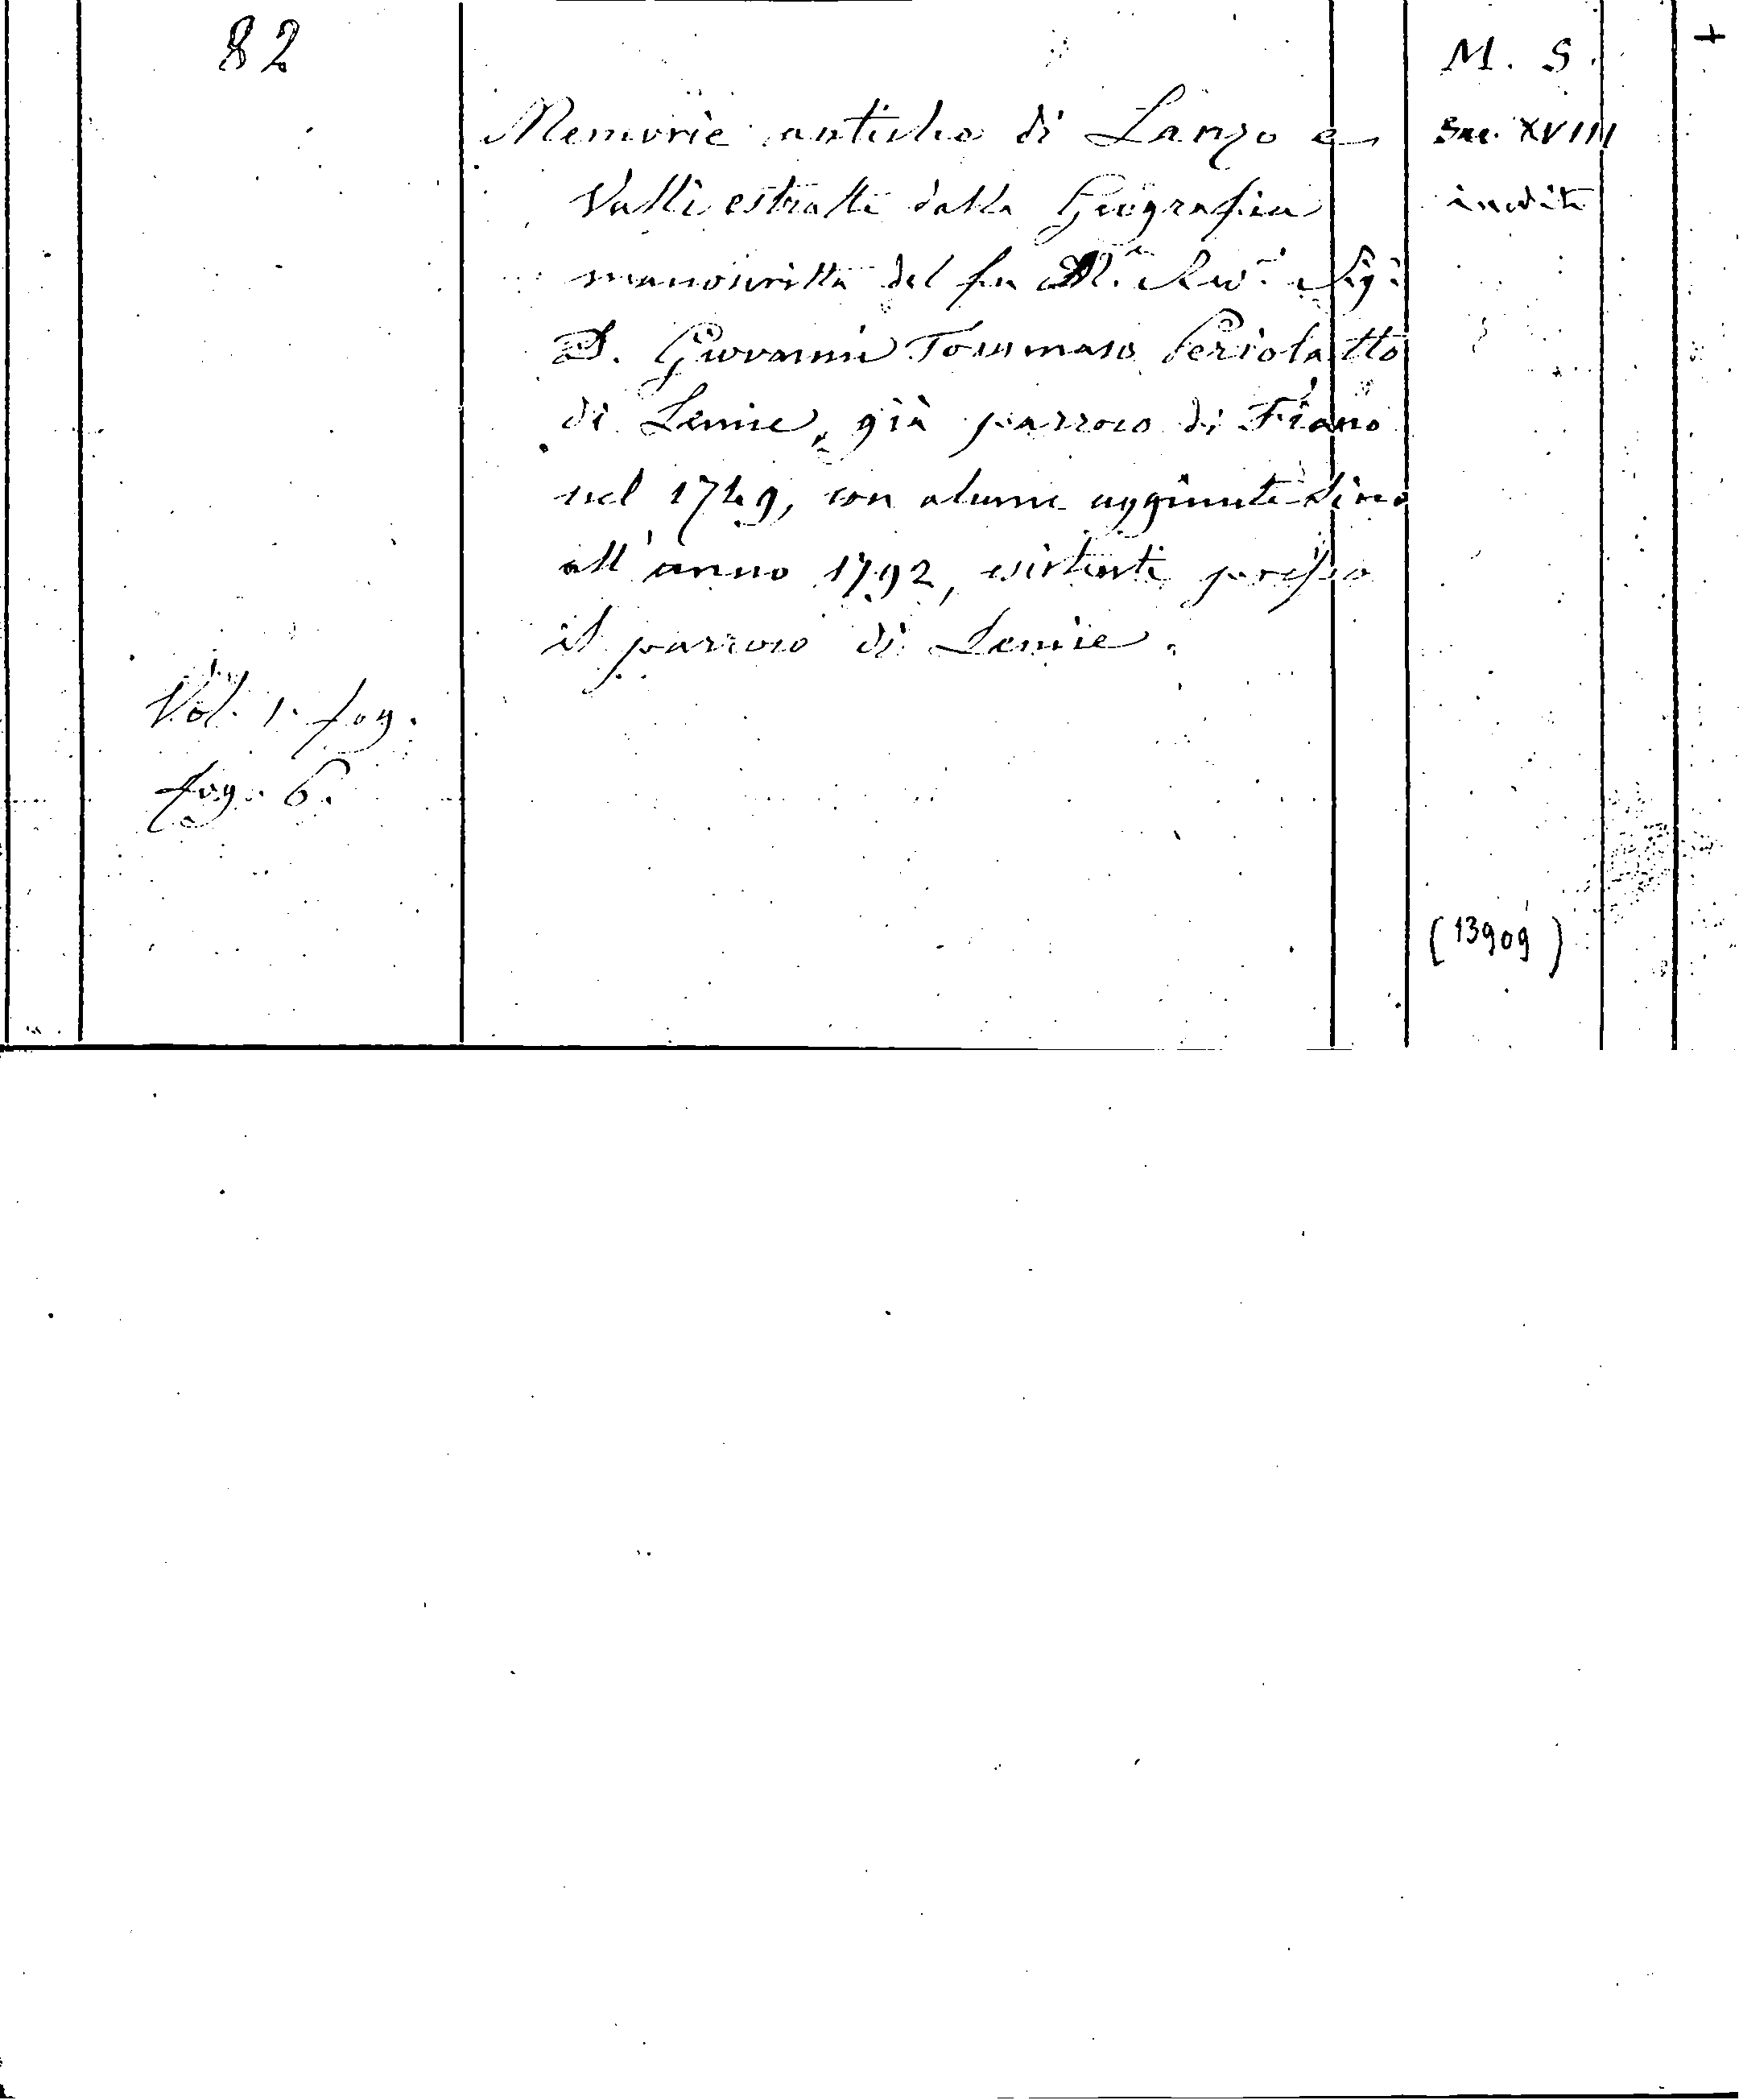 82
Memorie antiche di Lanzo e
Valli estratte dalla Geografia
manoscritta del fu M. Rev. Sig.
D. Giovanni Tommaso Periolatto
di Lemie, già parroco di Fiano
nel 1749, con alcune aggiunte sino
all'anno 1792, esistenti presso
il parroco di Lemie.
Vol. 1. fog.
fog. 6.
M. S.
Sec. XVIII
inedite
(13909)
+